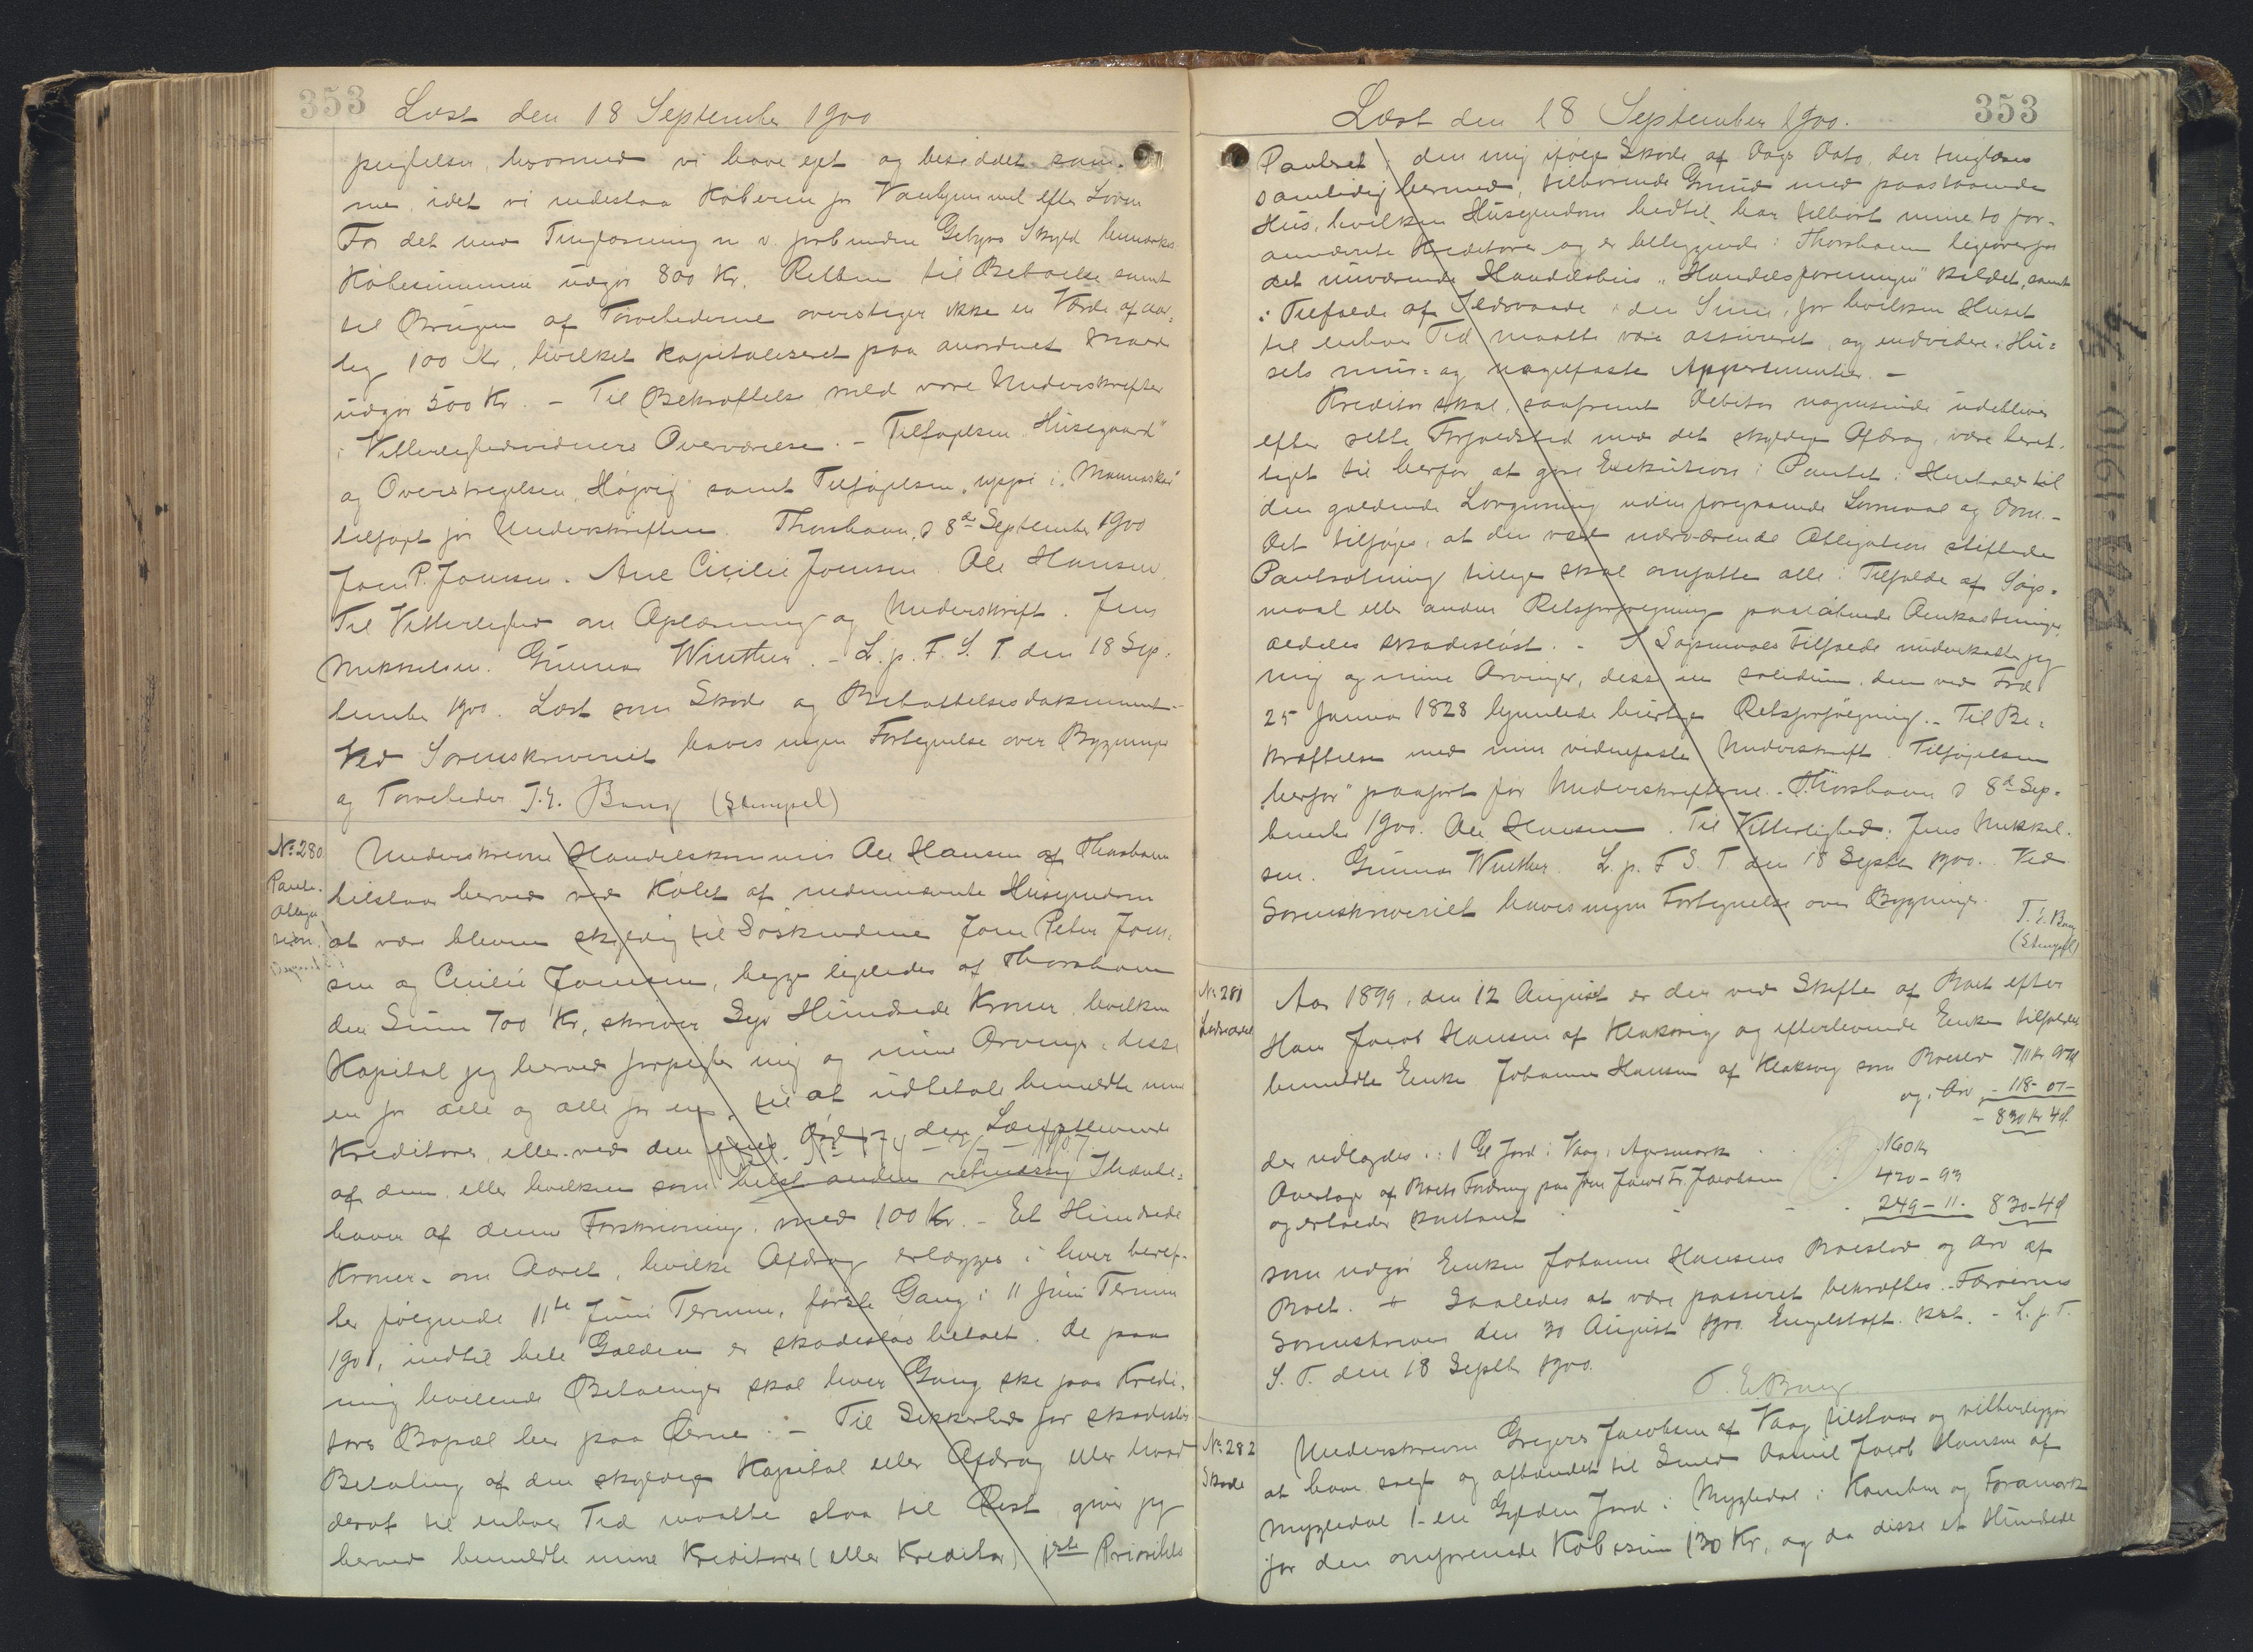 353 Læst den 18 September 1900
pengelser, hvormed vi have ejet og besiddet sam-
me, idet vi indestaa Køberen for Vanhjemmel efter Loven
For det med Tinglæsning m. v. forbundne Gebyrs Skyld bemærkes
Købesummen udgør 800 Kr. Retten til Beboelse samt
til Brugen af Tørvehederne overstiger ikke en Værdi af aar-
lig 100 Kr, hvilket kapitaliseret paa anordnet Maade
udgør 500 Kr. - Til Bekræftelse med vore Underskrifter
i Vitterlighedsvidners Overværelse. - Tilføjelsen "Husegaard"
og Overstregelsen "Højvig" samt Tilføjelsen "uppi i Mannaskar"
tilføjet før Underskriften. Thorshavn, d 8de September 1900
Joen P. Joensen. Ane Cicilie Joensen. Ole Hansen.
Til Vitterlighed om Oplæsning og Underskrift. Jens
Mikkelsen. Gunnar Winther. - L. p. F. S. T. den 18 Sep-
tember 1900. Læst som Skøde og Bebottelsesdokument -
Ved Sorenskriveriet haves ingen Fortegnelse over Bygninger
og Tørveheder T. E. Bang (Stempel)
No 280
Pante-
obliga-
tion.
Underskrevne Handelskommis Ole Hansen af Thorshavn
tilstaar herved ved Købet af nedennævnte Husejendom
at være bleven skyldig til Søskendene Joen Peter Joen-
sen og Cicilie Joensen, begge ligeledes af Thorshavn
den Sum 700 Kr, skriver Syv Hundrede Kroner, hvilken
Kapital jeg herved forpligter mig og mine Arvinger, disse
en for alle og alle for en, til at udbetale bemeldte mine
Kreditorer, eller ved den enes Død den Længstlevende
af dem, eller hvilken som helst anden retmæssig Ihænde-
haver af denne Forskrivning, med 100 Kr. - Et Hundrede
Kroner - om Aaret, hvilke Afdrag erlægges i hver heref-
ter følgende 11te Juni Termin, første Gang i 11 Juni Termin
1901, indtil hele Gælden er skadesløs betalt. De paa
mig hvilende Betalinger skal hver Gang ske paa Kredi-
tors Bopæl her paa Øerne. - Til Sikkerhed for skadesløs
Betaling af den skyldige Kapital eller Afdrag eller hvad
deraf til enhver Tid maatte staa til Rest giver jeg
herved bemeldte mine Kreditorer (eller Kreditor) 1ste Prioritets
Læst den 18 September 1900. 353
Panteret i den mig ifølge Skøde af Dags Dato, der tinglæses
samtidig hermed, tilhørende Grund med paastaaende
Hus, hvilken Husejendom hidtil har tilhørt mine to for-
annævnte Kreditorer og er beliggende i Thorshavn ligeoverfor
det nuværende Handelshus "Handelsforeningen" kaldet, samt
i Tilfælde af Ildsvaade i den Sum, for hvilken Huset
til enhver Tid maatte være assureret, og endvidere i Hu-
sets mur- og nagelfaste Appertinentier. -
Kreditor skal, saafremt Debitor nogensinde udebliver
efter rette Forfaldstid med det skyldige Afdrag, være beret-
tiget til herfor at gøre Exekution i Pantet i Henhold til
den gældende Lovgivning uden foregaaende Lovmaal og Dom. -
Det tilføjes, at den ved nærværende Obligation stiftede
Pantsætning tillige skal omfatte alle i Tilfælde af Søgs-
maal eller anden Retsforfølgning paaløbende Omkostninger,
aldeles skadesløst. - I Søgsmaals Tilfælde underkaster jeg
mig og mine Arvinger, disse in solidum, den ved Frd.
25 Januar 1828 hjemlede hurtige Retsforfølgning. - Til Be-
kræftelse med min vidnefaste Underskrift. Tilføjelsen
"herfor" paaført før Underskrifterne. - Thorshavn d 8de Sep-
tember 1900. Ole Hansen. Til Vitterlighed: Jens Mikkel-
sen. Gunnar Winther. L. p. F S. T den 18 Septbr 1900. Ved
Sorenskriveriet haves ingen Fortegnelse over Bygninger.
T. E. Bang
(Stempel)
P.A. 1910-5/9.
No 281
Aar 1899, den 12 August er der ved Skifte af Boet efter
Hans Jacob Hansen af Klaksvig og efterlevende Enke tilfalden
bemeldte Enke Johanne Hansen af Klaksvig som Boeslod 711 Kr 97
og i Arv - 118 - 07 -
- 830 Kr 4
der udlagdes i: 1 Gl Jord i Vaag, Agersmark 160 Kr
Overtager af Boets Fordring paa Joen Jacob Fr. Jacobsen 420 - 93
og erholder kontant 249 - 11. 830 - 4
som udgør Enken Johanne Hansens Boeslod og Arv af
Boet. - Saaledes at være passeret bekræftes. - Færøernes
Sorenskriveri den 30 August 1900. Engelstoft. kst. - L. p. F.
S. T. den 18 Septbr 1900.
T. E. Bang
No 282
Skøde
Underskrevne Gregers Jacobsen af Vaag tilstaar og vitterliggør
at have solgt og afhændet til Smed Daniel Jacob Hansen af
Mygledal 1 - en Gylden Jord i Mygledal i Hamben og Foramark
for den omforenede Købesum 130 Kr, og da disse et Hundrede